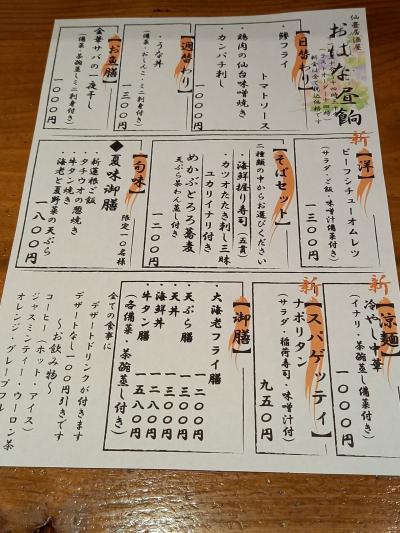 仙臺居酒屋
おはな昼餉
【日替わり】
・鯵フライ
トマトソース
・鶏肉の仙台味噌焼き
・カンパチ刺し
一〇〇〇円
【週替わり】
・うな丼
(備菜・おしんこ・ミニ刺身付き)
一三〇〇円
【お魚膳】
金華サバの一夜干し
(備菜・茶碗蒸しミニ刺身付き)
一〇〇〇円
新【洋】
ビーフシチューオムレツ
(サラダ・ご飯・味噌汁備菜付き)
一三〇〇円
【そばセット】
二種類の中からお選びください
・海鮮握り寿司(五貫)
・カツオたたき刺し三昧
ユカリイナリ付き
めかぶとろろ蕎麦
天ぷら茶わん蒸し付き
一二〇〇円
【旬味】
◆夏味御膳
限定一〇名様
・新蓮根ご飯
・タチウオの葱焼き
・牛タン焼き
・海老と夏野菜の天ぷら
一八〇〇円
新【涼麺】
冷やし中華
(イナリ・茶碗蒸し備菜付き)
一〇〇〇円
新【スパゲッティ】
ナポリタン
(サラダ・稲荷寿司・味噌汁付)
九五〇円
【御膳】
・大海老フライ膳
一二〇〇円
・天ぷら膳
一三〇〇円
・天丼
一三〇〇円
・海鮮丼
一二八〇円
・牛タン膳
一五八〇円
(各備菜・茶碗蒸し付き)
全ての食事に
デザートドリンクが付きます
デザートなし一〇〇円引きです
～お飲み物～
コーヒー(ホット・アイス)
ジャスミンティー・ウーロン茶
オレンジ・グレープフル